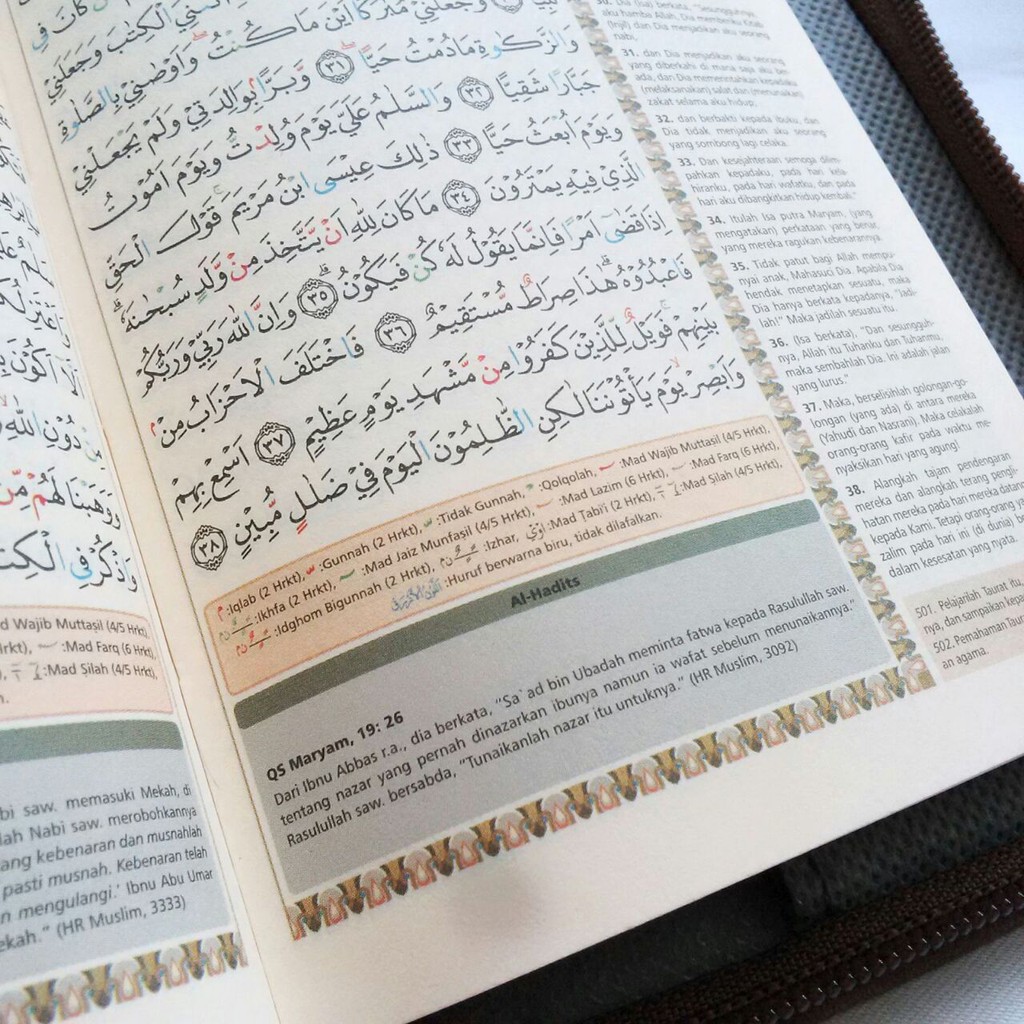 وَالزَّكٰوةِ مَا دُمْتُ حَيًّا ۖ ٣١ وَّبَرًّا بِوَالِدَتِيْ وَلَمْ يَجْعَلْنِيْ
جَبَّارًا شَقِيًّا ٣٢ وَالسَّلٰمُ عَلَيَّ يَوْمَ وُلِدْتُّ وَيَوْمَ اَمُوْتُ
وَيَوْمَ اُبْعَثُ حَيًّا ٣٣ ذٰلِكَ عِيْسَى ابْنُ مَرْيَمَ ۚ قَوْلَ الْحَقِّ
الَّذِيْ فِيْهِ يَمْتَرُوْنَ ٣٤ مَا كَانَ لِلّٰهِ اَنْ يَّتَّخِذَ مِنْ وَّلَدٍ سُبْحٰنَهٗ ۗ
اِذَا قَضٰٓى اَمْرًا فَاِنَّمَا يَقُوْلُ لَهٗ كُنْ فَيَكُوْنُ ۗ ٣٥ وَاِنَّ اللّٰهَ رَبِّيْ وَرَبُّكُمْ
فَاعْبُدُوْهُ ۗ هٰذَا صِرَاطٌ مُّسْتَقِيْمٌ ٣٦ فَاخْتَلَفَ الْاَحْزَابُ مِنْۢ
بَيْنِهِمْ ۚ فَوَيْلٌ لِّلَّذِيْنَ كَفَرُوْا مِنْ مَّشْهَدِ يَوْمٍ عَظِيْمٍ ٣٧ اَسْمِعْ بِهِمْ
وَاَبْصِرْ يَوْمَ يَأْتُوْنَنَا لٰكِنِ الظّٰلِمُوْنَ الْيَوْمَ فِيْ ضَلٰلٍ مُّبِيْنٍ ٣٨
:Iqlab (2 Hrkt), :Gunnah (2 Hrkt), :Tidak Gunnah, :Qolqolah, :Mad Wajib Muttasil (4/5 Hrkt),
:Ikhfa (2 Hrkt), :Mad Jaiz Munfasil (4/5 Hrkt), :Mad Lazim (6 Hrkt), :Mad Farq (6 Hrkt)
:Idghom Bigunnah (2 Hrkt), :Izhar, :Mad Tabi'i (2 Hrkt), :Mad Silah (4/5 Hrkt),
:Huruf berwarna biru, tidak dilafalkan.
Al-Hadits
QS Maryam, 19: 26
Dari Ibnu Abbas r.a., dia berkata, "Sa`ad bin Ubadah meminta fatwa kepada Rasulullah saw.
tentang nazar yang pernah dinazarkan ibunya namun ia wafat sebelum menunaikannya."
Rasulullah saw. bersabda, "Tunaikanlah nazar itu untuknya." (HR Muslim, 3092)
30. Dia (Isa) berkata, "Sesungguhnya
aku hamba Allah, Dia memberiku Kitab
(Injil) dan Dia menjadikan aku seorang
nabi,
31. dan Dia menjadikan aku seorang
yang diberkahi di mana saja aku ber-
ada, dan Dia memerintahkan kepadaku
(melaksanakan) salat dan (menunaikan)
zakat selama aku hidup,
32. dan berbakti kepada ibuku, dan
Dia tidak menjadikan aku seorang
yang sombong lagi celaka.
33. Dan kesejahteraan semoga dilim-
pahkan kepadaku, pada hari kela-
hiranku, pada hari wafatku, dan pada
hari aku dibangkitkan hidup kembali."
34. Itulah Isa putra Maryam, (yang
mengatakan) perkataan yang benar,
yang mereka ragukan kebenarannya.
35. Tidak patut bagi Allah mempu-
nyai anak, Mahasuci Dia. Apabila Dia
hendak menetapkan sesuatu, maka
Dia hanya berkata kepadanya, "Jadi-
lah!" Maka jadilah sesuatu itu.
36. (Isa berkata), "Dan sesungguh-
nya, Allah itu Tuhanku dan Tuhanmu,
maka sembahlah Dia. Ini adalah jalan
yang lurus."
37. Maka, berselisihlah golongan-go-
longan (yang ada) di antara mereka
(Yahudi dan Nasrani). Maka celakalah
orang-orang kafir pada waktu me-
nyaksikan hari yang agung!
38. Alangkah tajam pendengaran
mereka dan alangkah terang pengli-
hatan mereka pada hari mereka datang
kepada Kami. Tetapi orang-orang ya
zalim pada hari ini (di dunia) be
dalam kesesatan yang nyata.
501. Pelajarilah Taurat itu,
nya, dan sampaikan kepa
502. Pemahaman Taur
an agama.
d Wajib Muttasil (4/5 Hrkt),
rkt), :Mad Farq (6 Hrkt)
:Mad Silah (4/5 Hrkt),
bi saw. memasuki Mekah, di
lah Nabi saw. merobohkannya
ang kebenaran dan musnahlah
pasti musnah. Kebenaran telah
n mengulangi.' Ibnu Abu Umar
ekah." (HR Muslim, 3333)